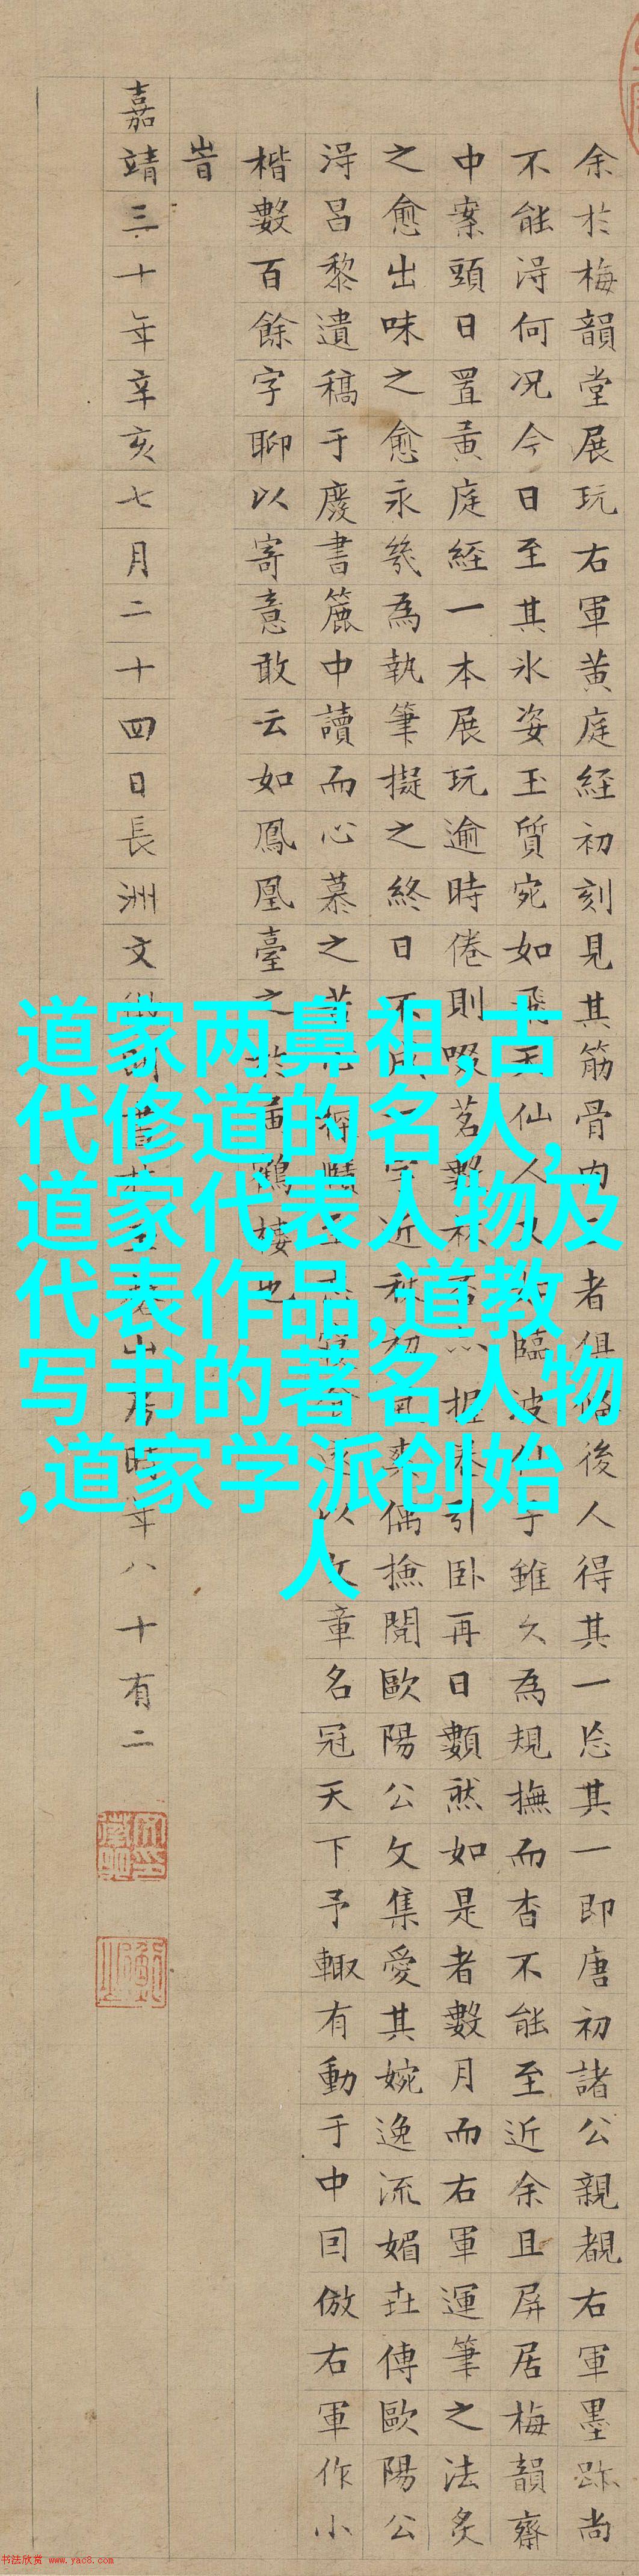 余於梅韻堂展玩右軍黄庭経初刻見其筋骨肉者俱後人得其一忘其一即唐初諸公親覩右軍墨跡尚
不能淂何況今日至其氷姿玉質宛如飛天仙人臨波于雖久為規撫而杳不能至近余且屏居梅韻齋
中案頭日置黄庭経一本展玩逾時倦則啜茗數握卷引卧再日數然如是者數月而右軍運筆之法炙
之愈出味之愈永幾為執筆擬之終日不字近秋初爽偶撿閱歐陽公文集愛其婉逸流媚世傳歐陽公
淂昌黎遺稿于廢書簏中讀而心慕之苦探以文章名冠天下予輙有動于中因倣右軍作小
楷數百餘字聊以寄意敢云如鳳凰臺之鶴樓也
旹
嘉靖三十年辛亥七月二十四日長洲文山房時年八十有二
道家两鼻祖,古
代修道的名人,
道家代表人物及
代表作品,道教
写书的著名人物
,道家学派创始
人
书法欣赏 www.yac8.com